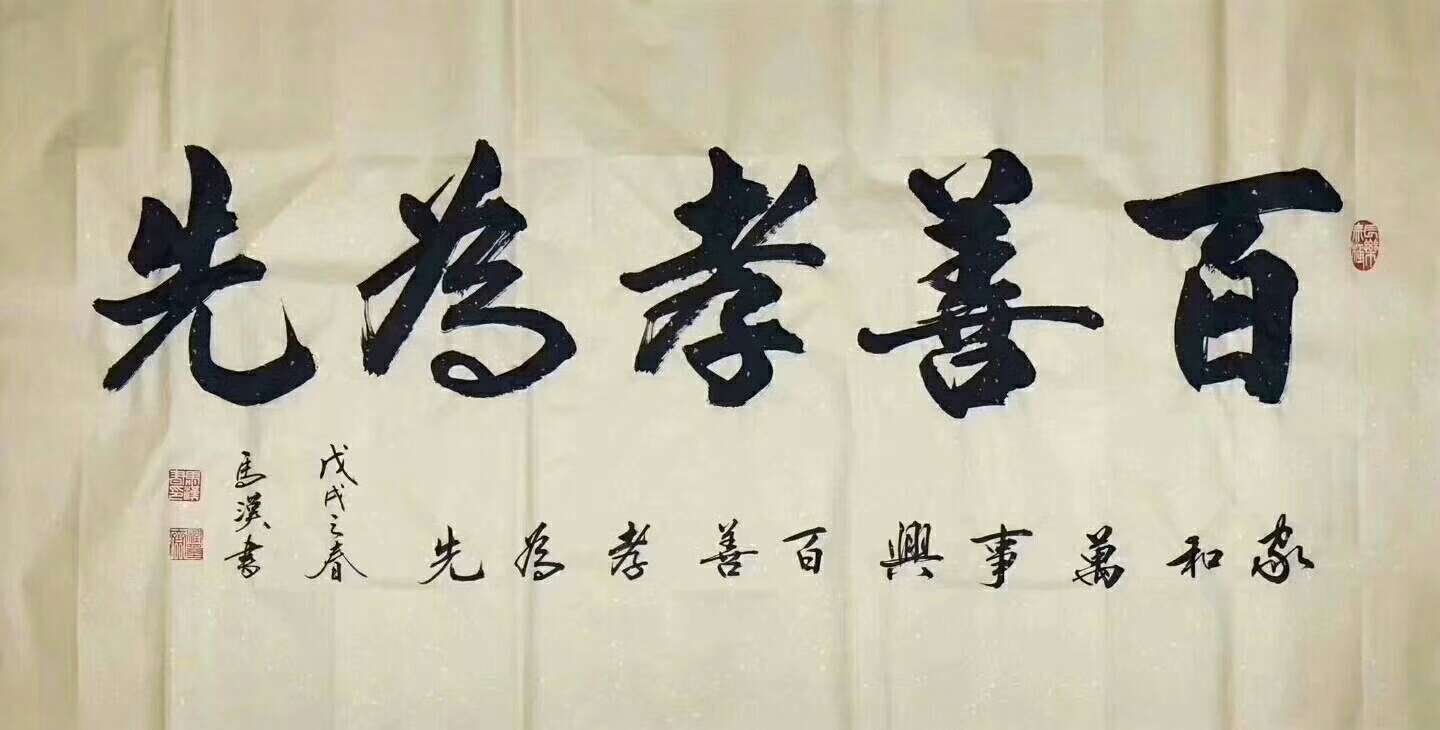 百善孝為先
家和萬事興百善孝為先
戊戌之春
馬漢書